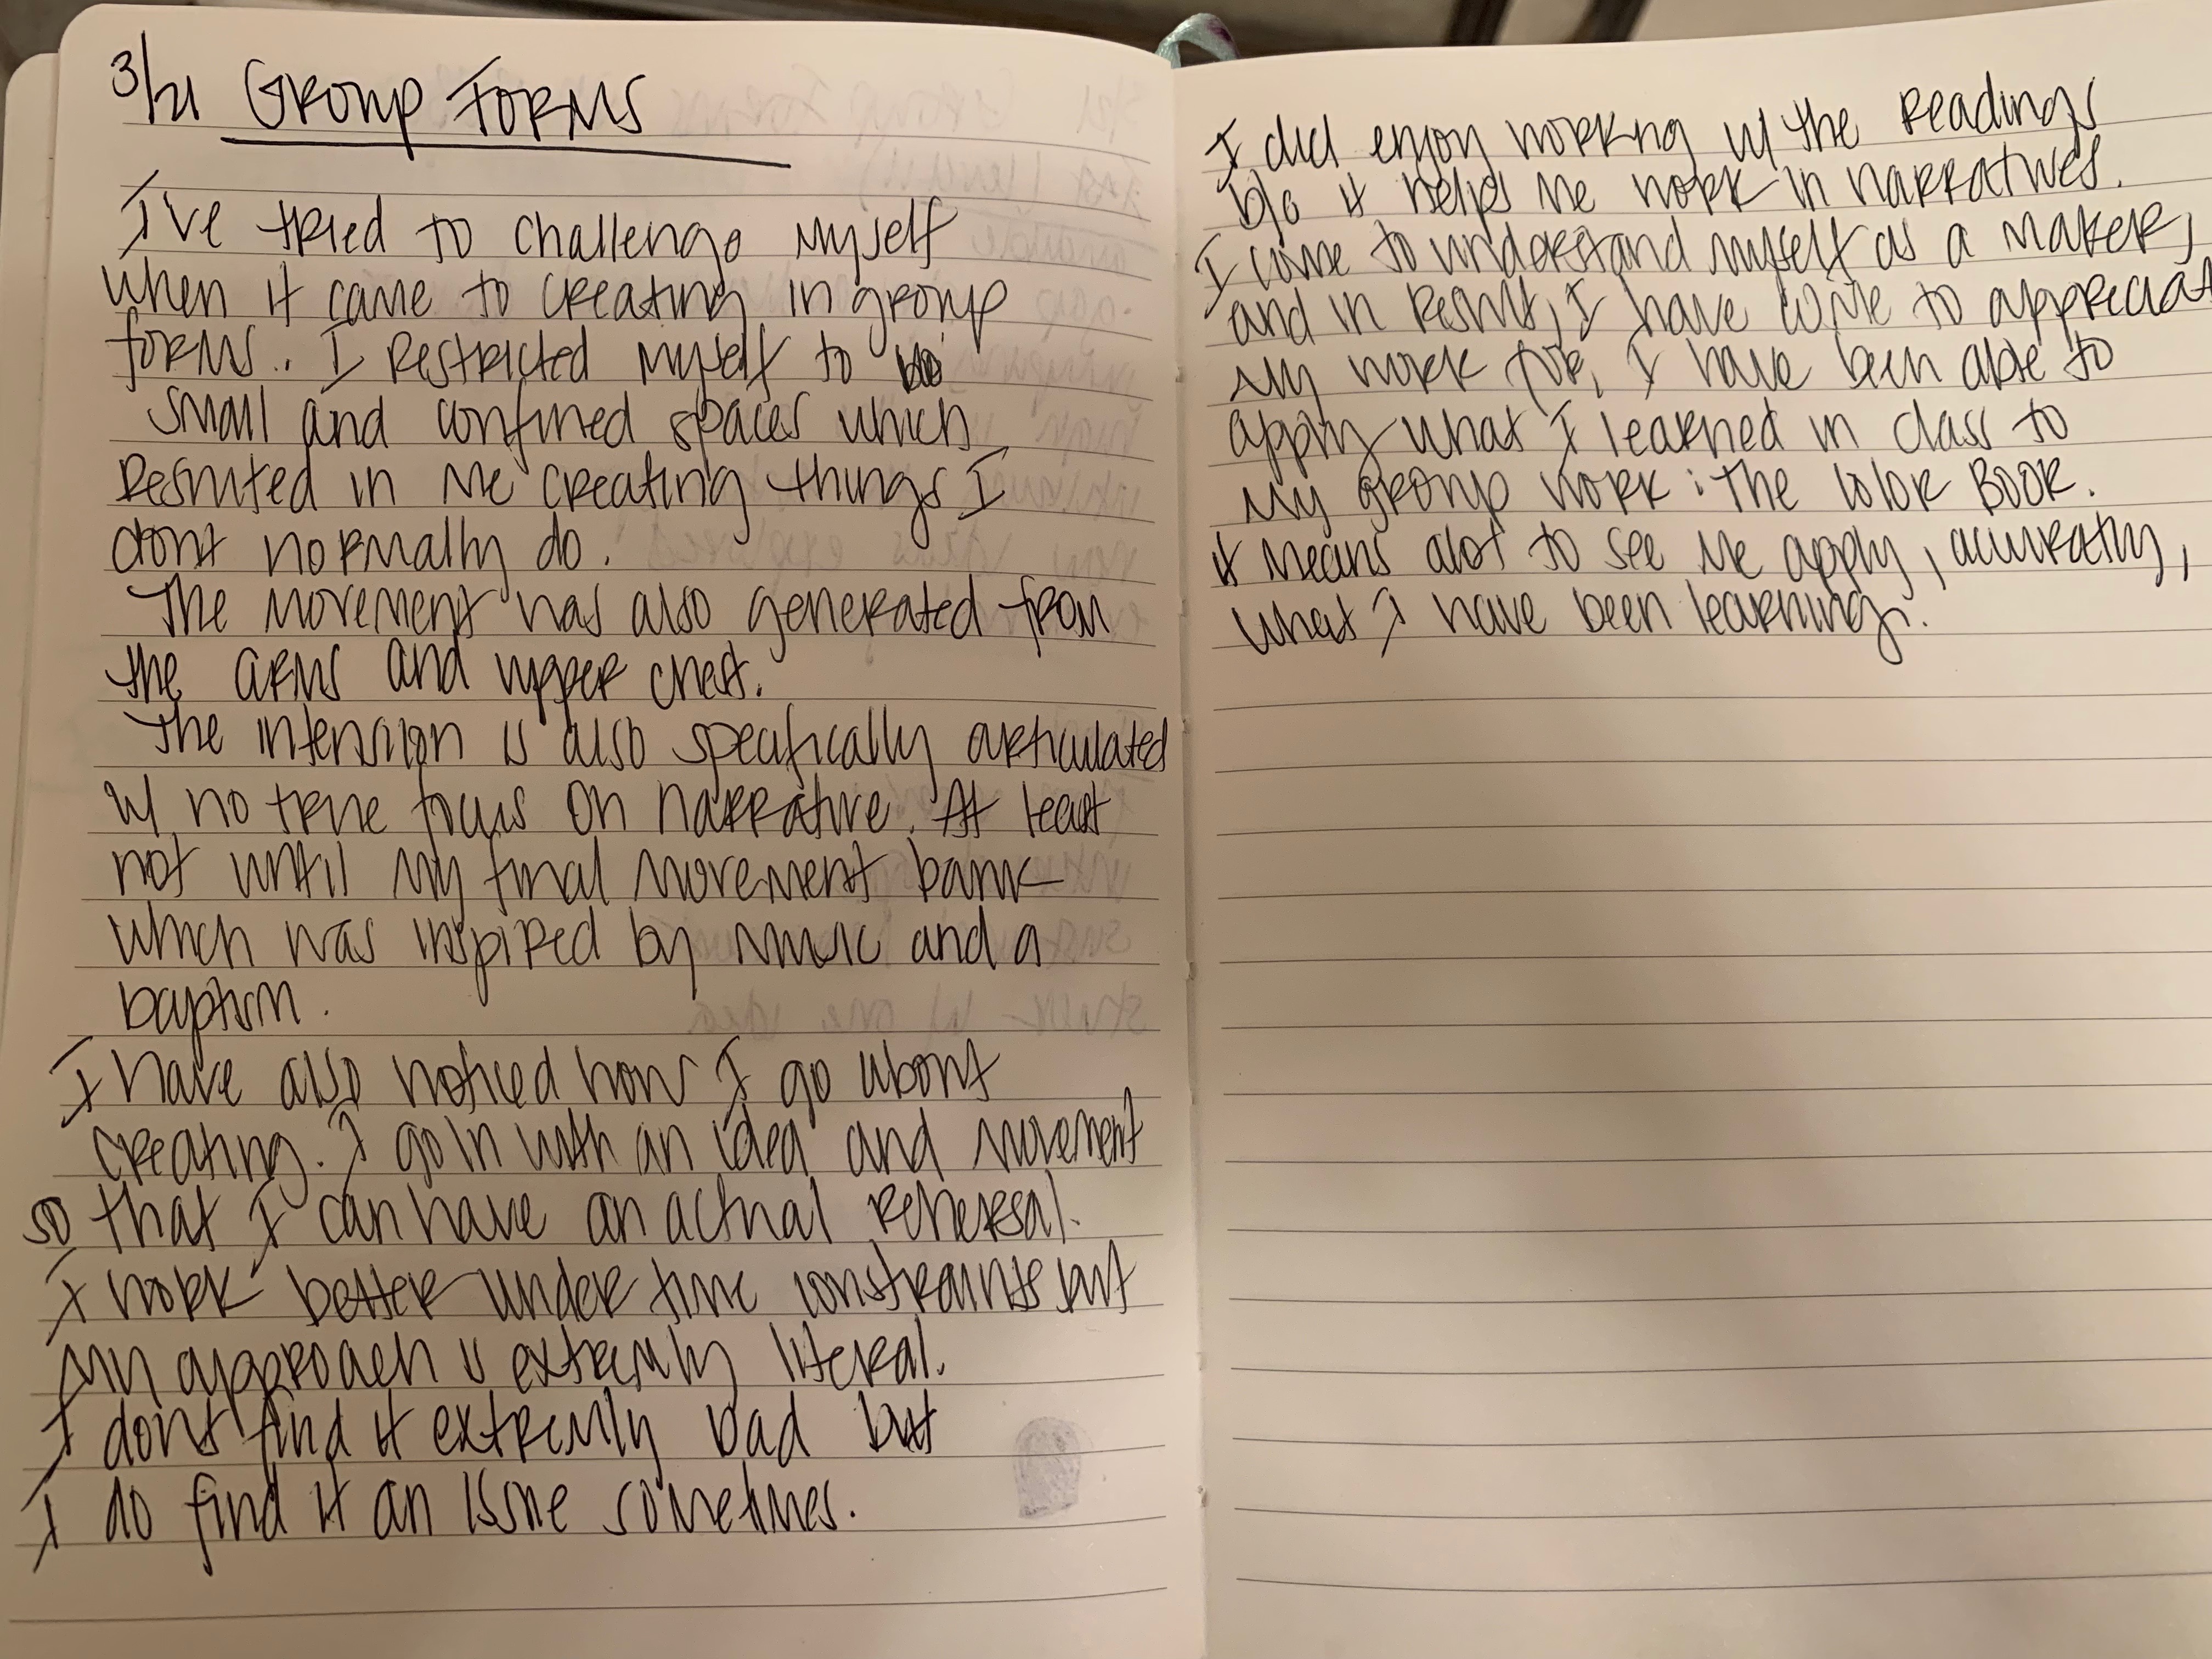 3/21 Group Forms
I've tried to challenge myself
when it came to creating in group
forms.. I restricted myself to
small and confined spaces which
resulted in me creating things I
dont normally do.
The movement was also generated from
the arms and upper chest.
The intension is also specifically articulated
w/ no true focus on narrative. At least
not until my final movement bank
which was inspired by music and a
baptism.
I have also noticed how I go about
creating. I go in with an idea and movement
so that I can have an actual rehersal.
I work better under time constraints but
my approach is extremly literal.
I dont find it extremly bad but
I do find it an issue sometimes.
I did enjoy working w/ the readings
b/c it helps me work in narratives.
I come to understand myself as a maker,
and in result, I have come to appreciat
my work for, I have been able to
apply what I learned in class to
my group work: The Color Book.
it means alot to see me apply, accuratly,
what I have been learning.